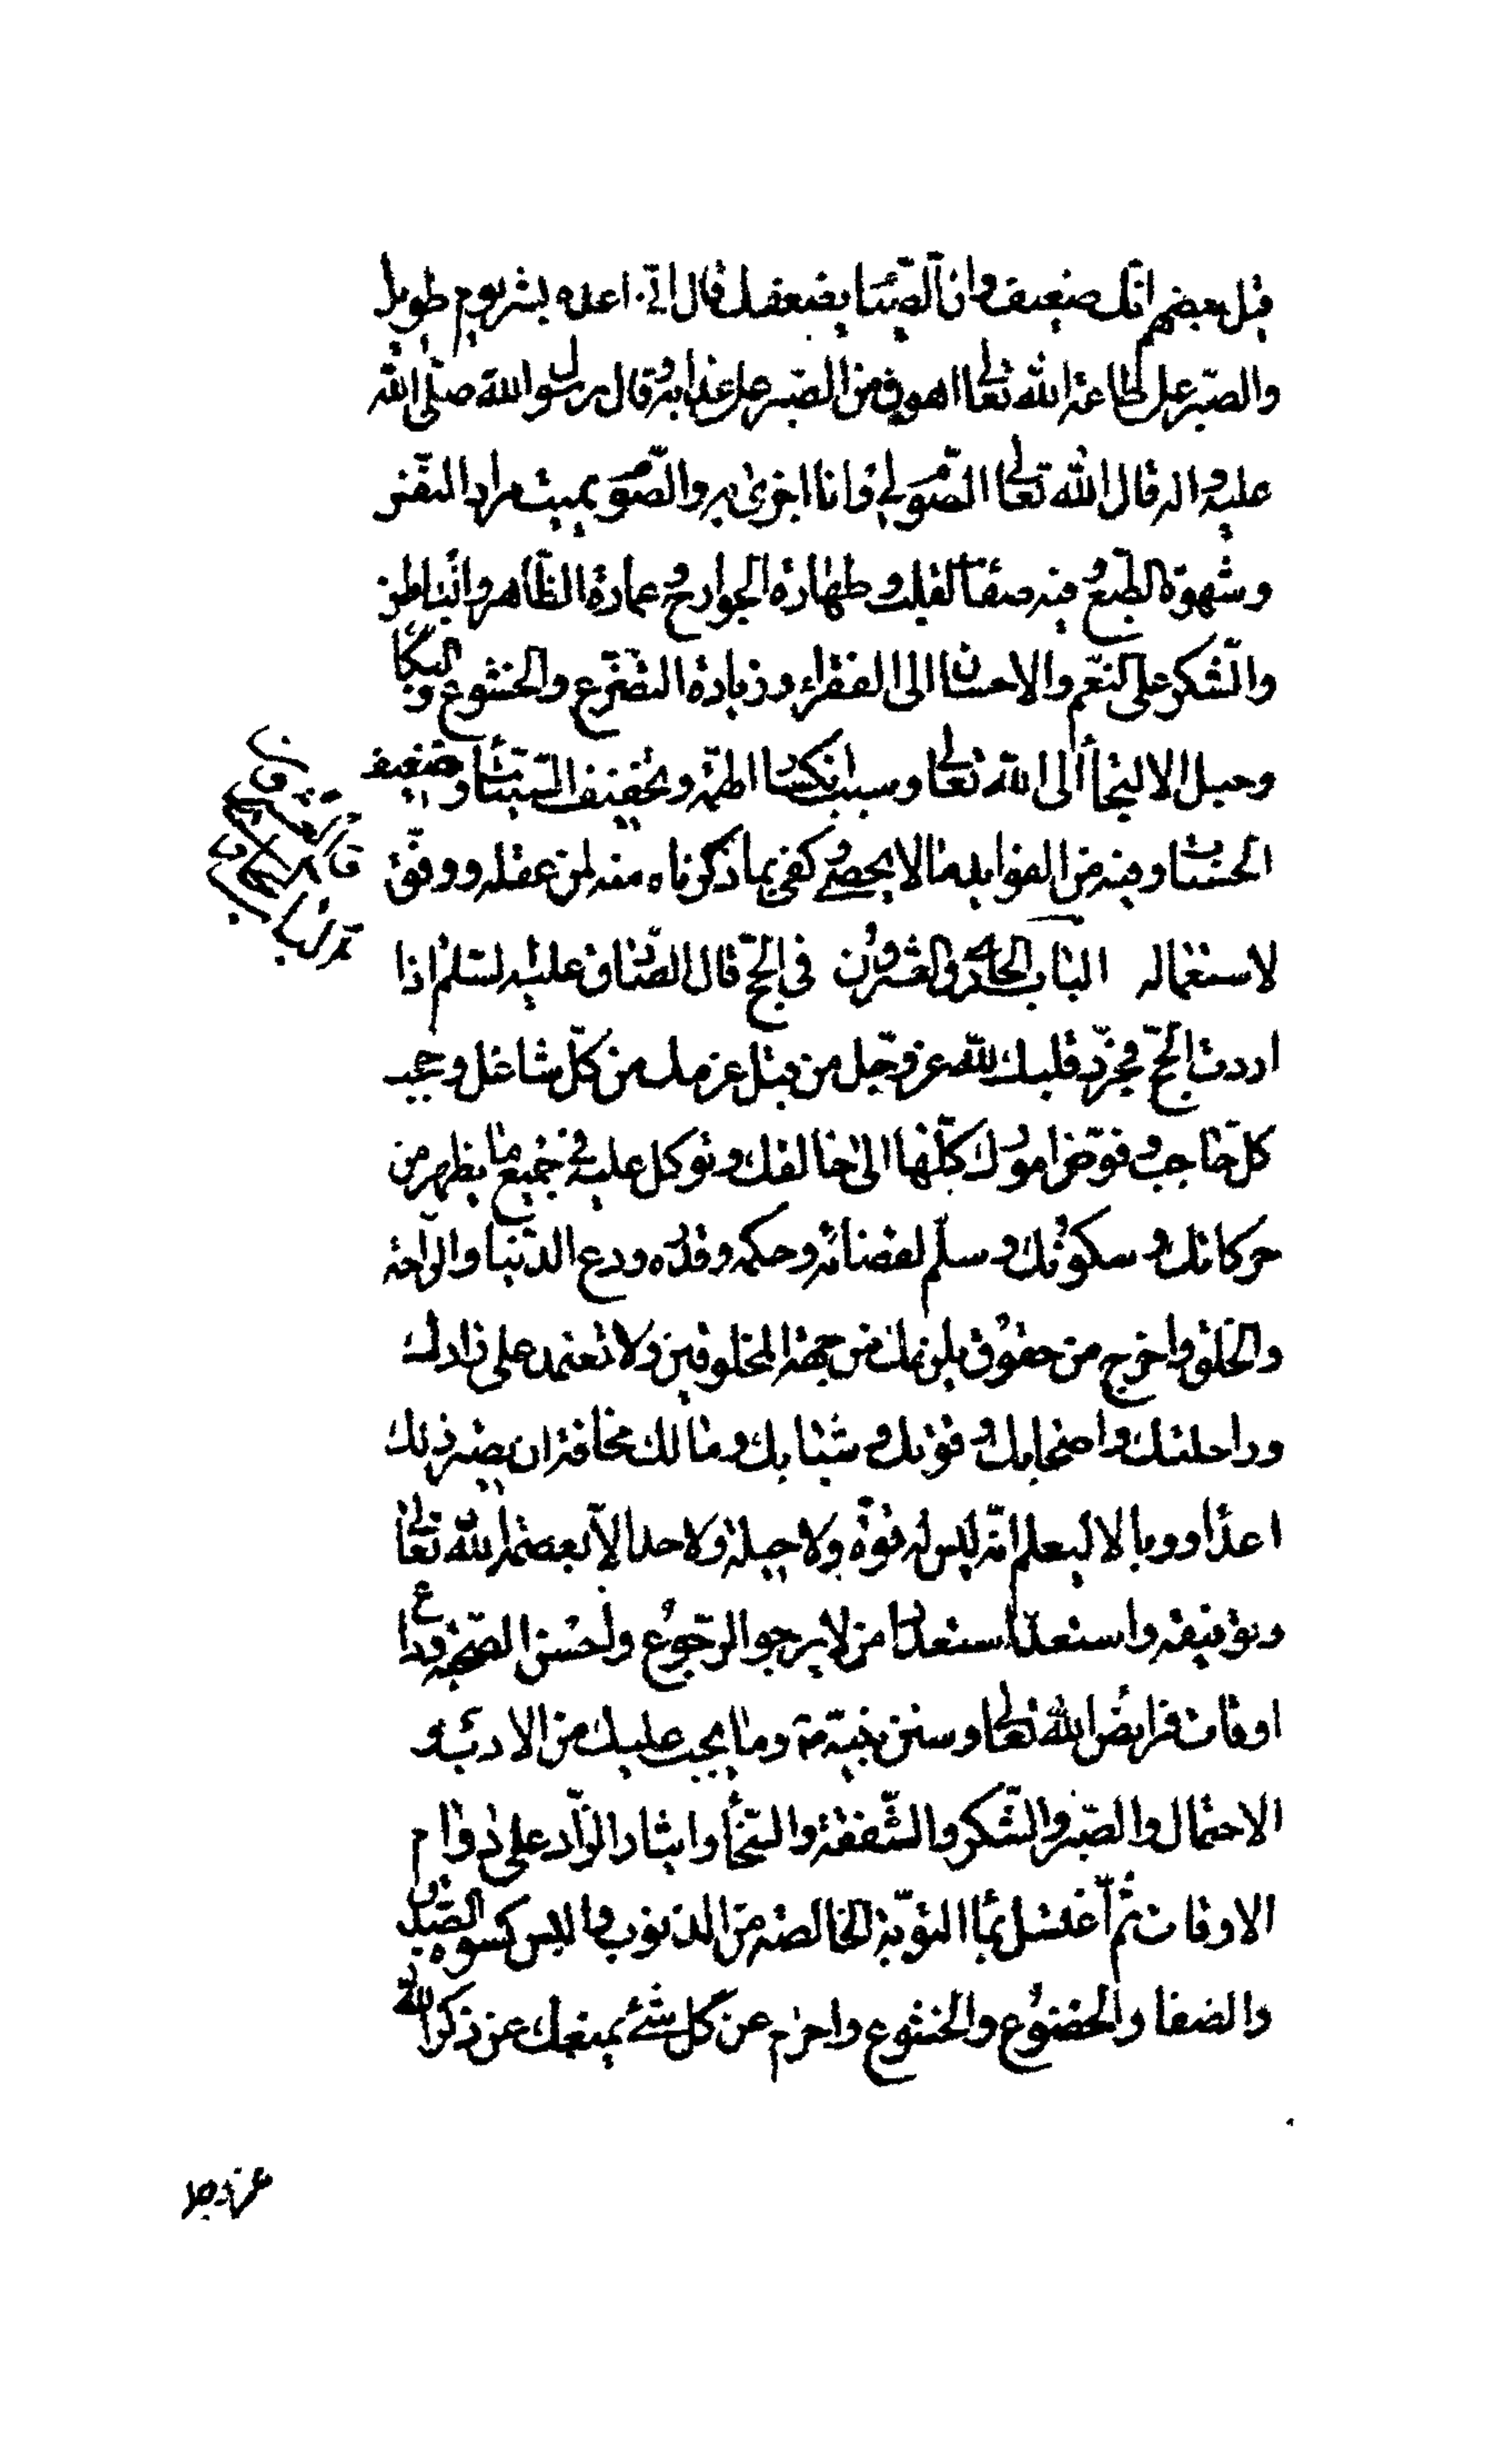 قيل لبعضهم انّك ضعيف وانّ الصّيام يضعفك قال انّى اعدّه لشرّ يوم طويل
والصّبر على طاعة الله تعالى اهون من الصّبر على عذابه وقال رسول الله صلّى الله
عليه واله قال الله تعالى الصّوم لى وانا اجزى به والصّوم يميت مراد النّفس
وشهوة الطّبع وفيه صفاء القلب وطهارة الجوارح وعمارة الظّاهر والباطن
والشّكر على النّعم والاحسان الى الفقراء وزيادة التضرّع والخشوع والبكاء
وحبل الالتجاء الى الله تعالى وسبب انكسار الهمّة وتخفيف السّيّئات وتضعيف
الحسنات وفيه من الفوايد ما لا يحصى وكفى بما ذكرناه منه لمن عقله ووفّق
لاستعماله الباب الحادى والعشرون فى الحجّ قال الصّادق عليه السّلم اذا
اردت الحجّ فجرّد قلبك لله عزّ وجلّ من قبل عزمك من كلّ شاغل وحجب
كلّ حاجب وفوّض امورك كلّها الى خالقك وتوكّل عليه فى جميع ما يظهر من
حركاتك وسكونك وسلّم لقضائه وحكمه وقدره ودع الدّنيا والرّاحة
والخلق واخرج من حقوق يلزمك من جهة المخلوقين ولا تعتمد على زادك
وراحلتك واصحابك وقوّتك وشبابك ومالك مخافة ان يصير ذلك
اعداء ووبالا ليعلم انّه ليس له قوّة ولا حيلة ولا احد الّا بعصمة الله تعالى
وتوفيقه واستعدّ استعداد من لا يرجو الرّجوع واحسن الصّحبة وراع
اوقات فرايض الله تعالى وسنن نبيّه ص وما يجب عليك من الادب و
الاحتمال والصّبر والشّكر والشّفقة والسّخاء وايثار الزّاد على دوام
الاوقات ثمّ اغتسل بماء التّوبة الخالصة من الذنوب والبس كسوة الصّدق
والصفاء والخضوع والخشوع واحرم عن كل شئ يمنعك عن ذكر الله
عزّ وجلّ